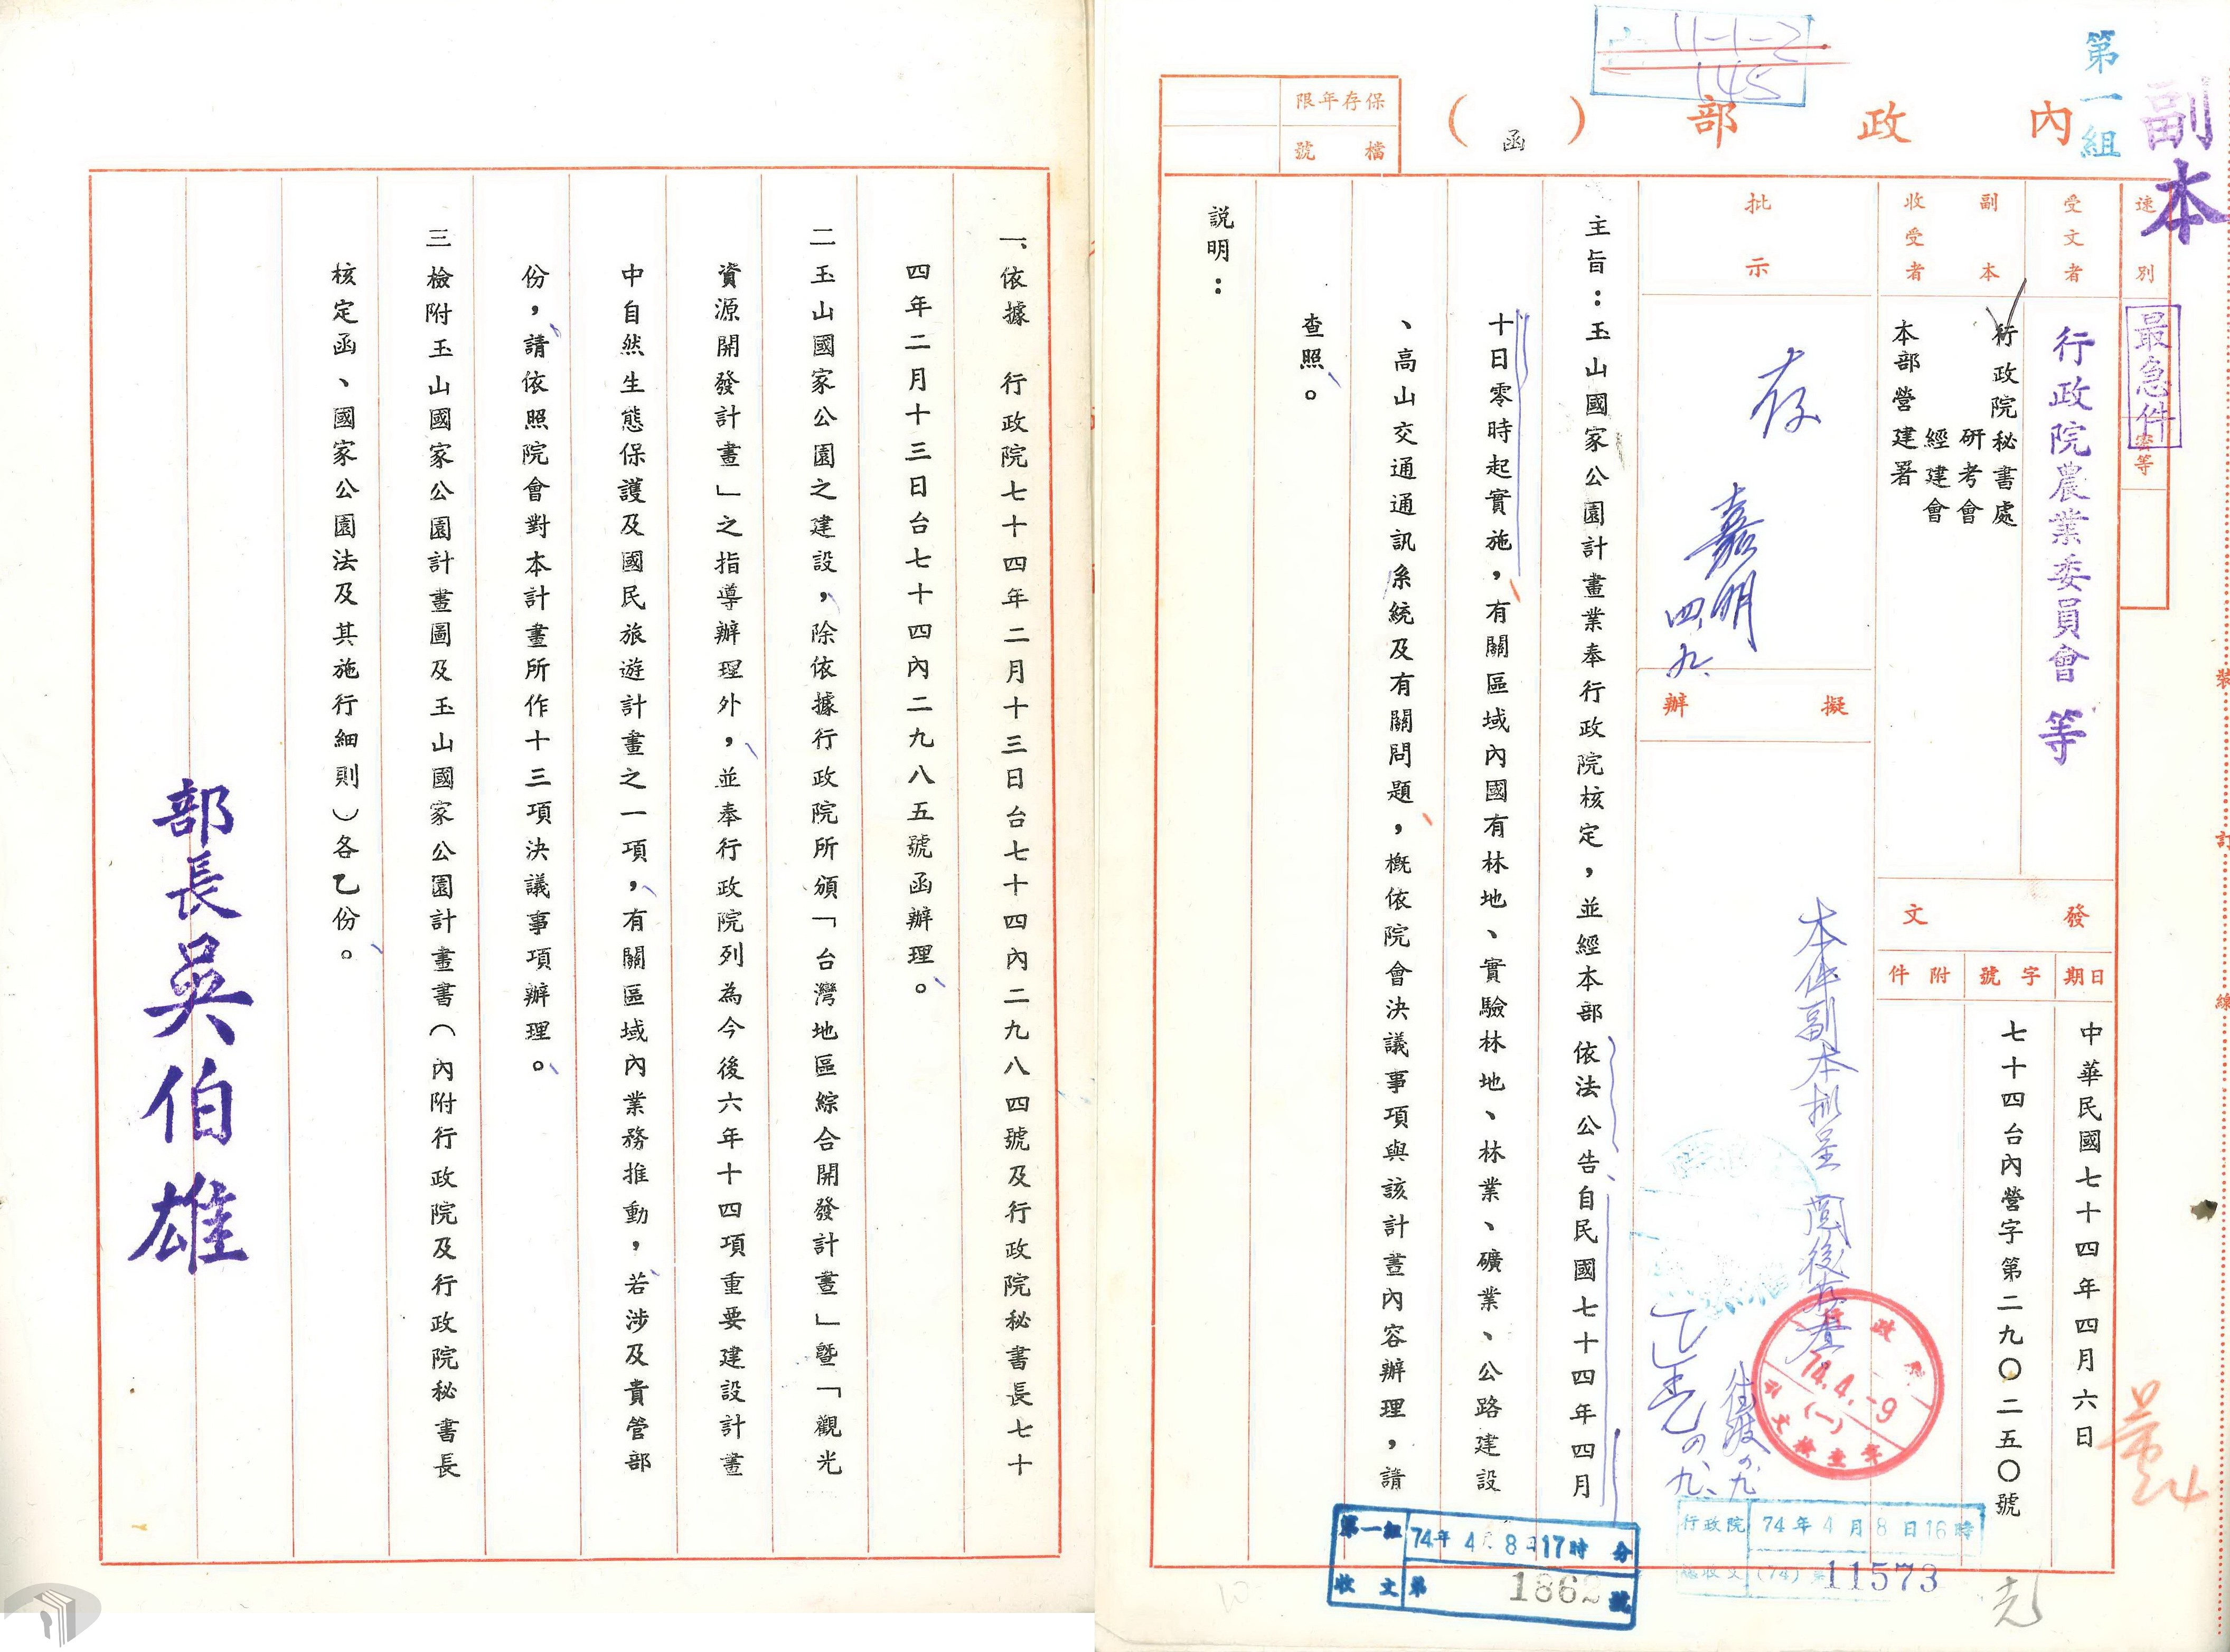 副本
第一組
內政部（函）
保存年限
檔號
速別
最急件
密等
受文者
行政院農業委員會等
副本收受者
行政院秘書處
研考會
經建會
本部營建署
發文
日期
中華民國七十四年四月六日
字號
七十四台內營字第二九〇二五〇號
附件
批示
存
嘉明
四.九.
擬辦
主旨：玉山國家公園計畫業奉行政院核定，並經本部依法公告自民國七十四年四月
十日零時起實施，有關區域內國有林地、實驗林地、林業、礦業、公路建設
、高山交通通訊系統及有關問題，概依院會決議事項與該計畫內容辦理，請
查照。
說明：
行政院
74.4.-9
(一)
行政院 74年4月8日16時
總收文 (74) 11573
第一組 74年4月8日17時 分
收文 第 1862 號
裝
訂
線
一、依據 行政院七十四年二月十三日台七十四內二九八四號及行政院秘書長七十
四年二月十三日台七十四內二九八五號函辦理。
二玉山國家公園之建設，除依據行政院所頒「台灣地區綜合開發計畫」暨「觀光
資源開發計畫」之指導辦理外，並奉行政院列為今後六年十四項重要建設計畫
中自然生態保護及國民旅遊計畫之一項，有關區域內業務推動，若涉及貴管部
份，請依照院會對本計畫所作十三項決議事項辦理。
三檢附玉山國家公園計畫圖及玉山國家公園計畫書（內附行政院及行政院秘書長
核定函、國家公園法及其施行細則）各乙份。
部長吳伯雄